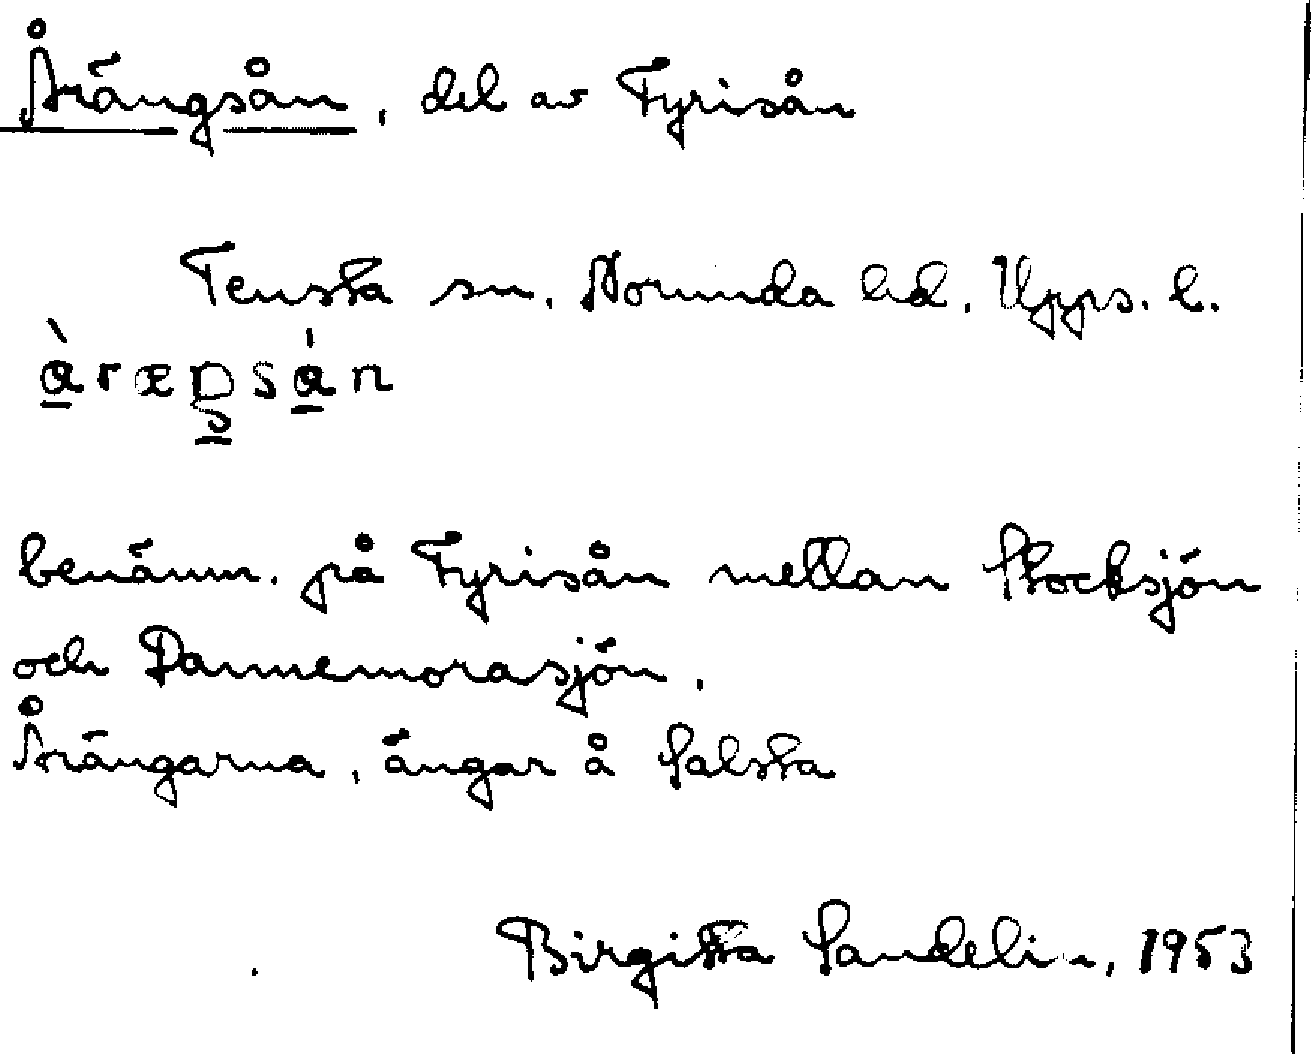 Årängsån, del av Fyrisån
Tensta sn. Norunda hd. Upps. l.
benämn. på Fyrisån mellan Stocksjön
och Dannemorasjön.
Årängarna, ängar å Salsta
Birgitta Sandelin, 1953